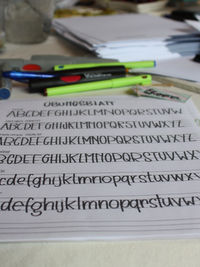 ÜBUNGSBLATT
ABCDEFGHIJKLMNOPQRSTUVW
ABCDEFGHIJKLMNOPQRSTUVWXYZ
ABCDEFGHIJKLMNOPQRSTUVWXYZ
ABCDEFGHIJKLMNOPQRSTUVWXY
cdefghijklmnopqrstuvwxy
cdefghijklmnopqrstuvwx